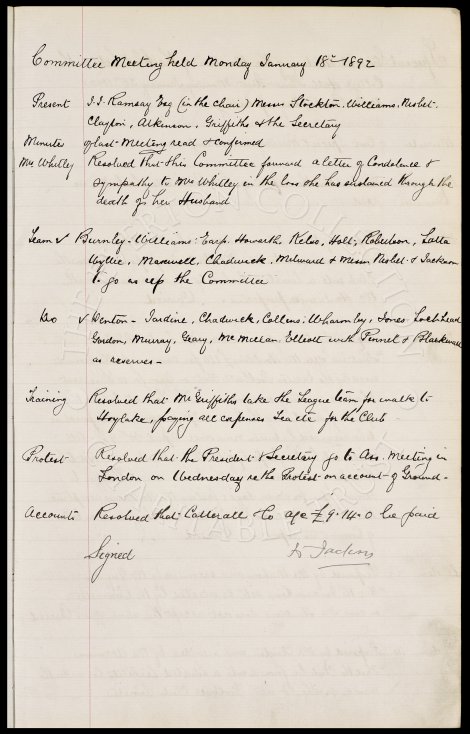 Committee Meeting held Monday January 18th 1892
Present J.J. Ramsay Esq (in the chair) Messrs Stockton, Williams, Nisbet
Clayton, Atkinson, Griffiths & the Secretary
Minutes of last Meeting read & confirmed
Mrs Whitley Resolved that this Committee forward a letter of Condolence &
sympathy to Mrs Whitley in the loss she has sustained through the
death of her Husband
Team v Burnley - Williams, Earp, Howarth, Kelso, Holt, Robertson, Latta
Wyllie, Maxwell, Chadwick, Milward & Messrs Nisbet & Jackson
to go as rep the Committee
Do v Denton - Jardine, Chadwick, Collins, Wharmby, Jones, Lochhead
Gordon, Murray, Geary, McMillan, Elliott with Pinnell &
as reserves -
Training Resolved that Mr Griffiths take the League team for walk to
Hoylake, paying all expenses Tea etc for the Club -
Protest Resolved that the President & Secretary go to Ass. Meeting in
London on Wednesday re the Protest on account of Ground -
Accounts Resolved that Catterall & Co a/c £9.14.0 be paid
Signed